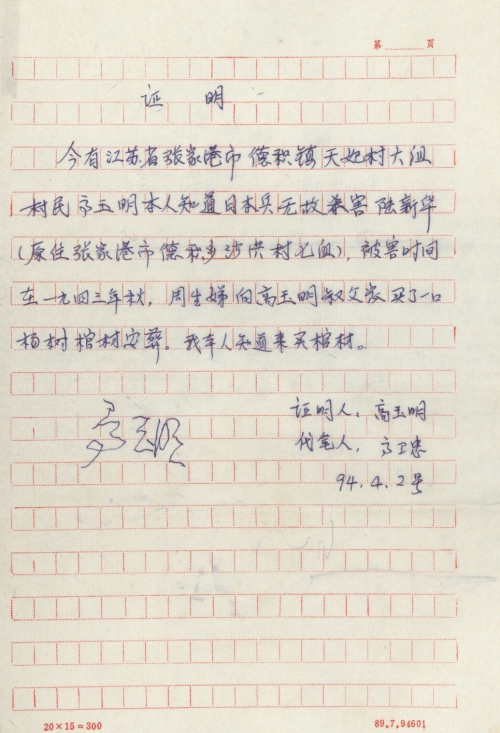 第 页
证 明
今有江苏省张家港市德积镇天妃村大组
村民高玉明本人知道日本兵无故杀害陆新华
(原住张家港市德积乡沙洪村七组),被害时间
在一九四三年秋,周生娣向高玉明叔父家买了一口
杨树棺材安葬。我本人知道来买棺材。
高玉明
证明人:高玉明
代笔人:高卫忠
94.4.2号
20×15=300
89.7.94601